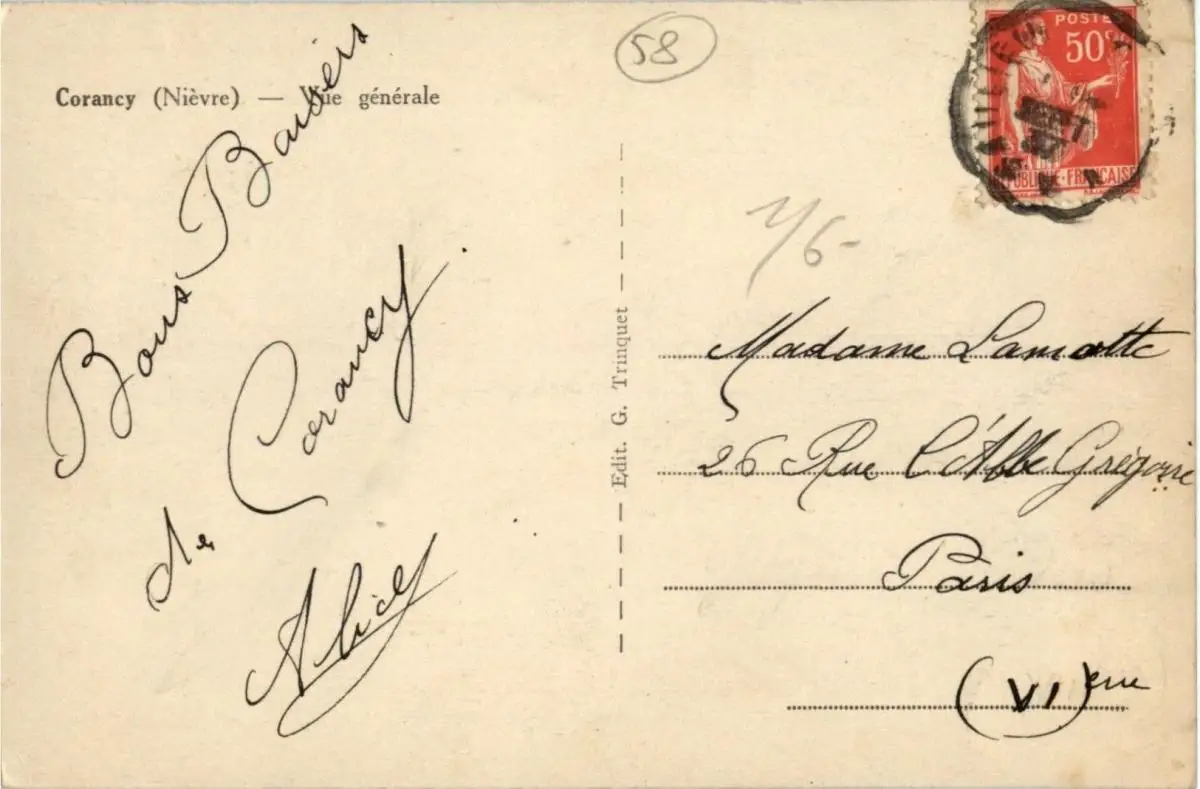 Corancy (Nièvre) — Vue générale
58
Bons Baisers
de Corancy
Alice
Edit. G. Trinquet
POSTES
50c
RÉPUBLIQUE-FRANÇAISE
Madame Lamotte
26 Rue l'Abbé Grégoire
Paris
(VI)eme